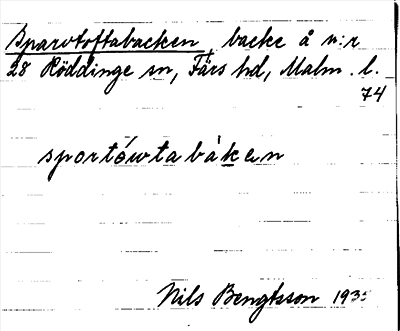 Sparvtoftabacken, backe å n:r
28 Röddinge sn, Färs hd, Malm. l.
74
sportówtabàken
Nils Bengtsson 1935